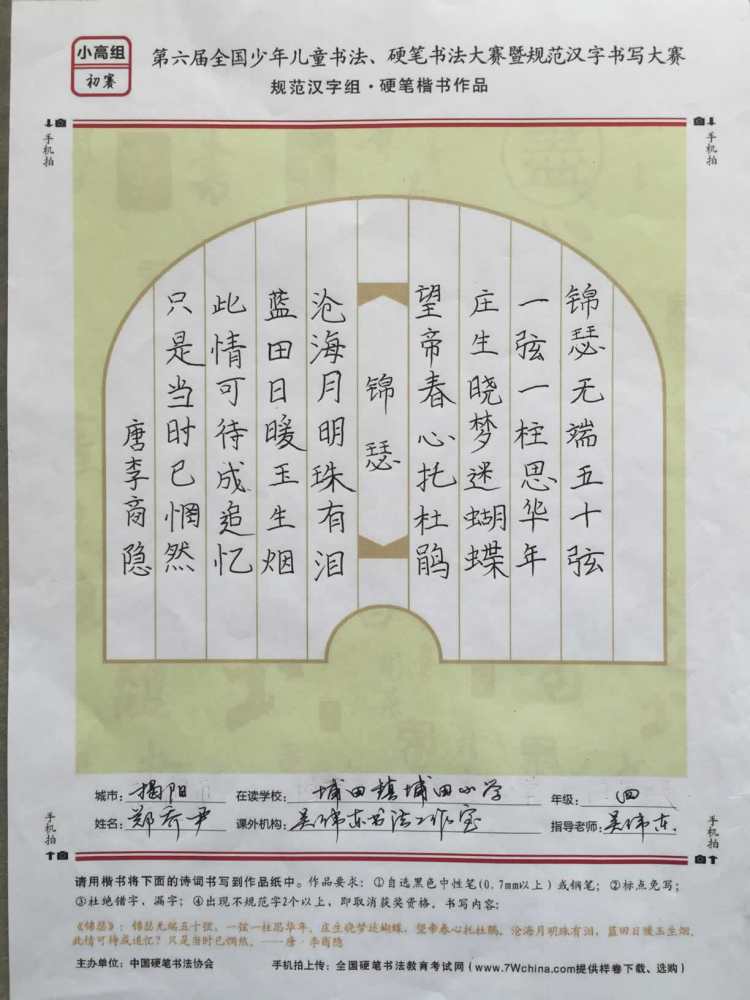 小高组
初赛
第六届全国少年儿童书法、硬笔书法大赛暨规范汉字书写大赛
规范汉字组·硬笔楷书作品
手机拍
手机拍
锦瑟无端五十弦
一弦一柱思华年
庄生晓梦迷蝴蝶
望帝春心托杜鹃
锦瑟
沧海月明珠有泪
蓝田日暖玉生烟
此情可待成追忆
只是当时已惘然
唐李商隐
城市：揭阳 在读学校：埔田镇埔田小学 年级：四
姓名：郑乔尹 课外机构：吴伟东书法工作室 指导老师：吴伟东
手机拍
手机拍
请用楷书将下面的诗词书写到作品纸中。作品要求：①自选黑色中性笔(0.7mm以上)或钢笔；②标点免写；
③杜绝错字，漏字；④出现不规范字2个以上，即取消获奖资格。书写内容：
《锦瑟》：锦瑟无端五十弦，一弦一柱思华年。庄生晓梦迷蝴蝶，望帝春心托杜鹃。沧海月明珠有泪，蓝田日暖玉生烟。
此情可待成追忆？只是当时已惘然。——唐·李商隐
主办单位：中国硬笔书法协会 手机拍上传：全国硬笔书法教育考试网（www.7Wchina.com提供样卷下载、选购）